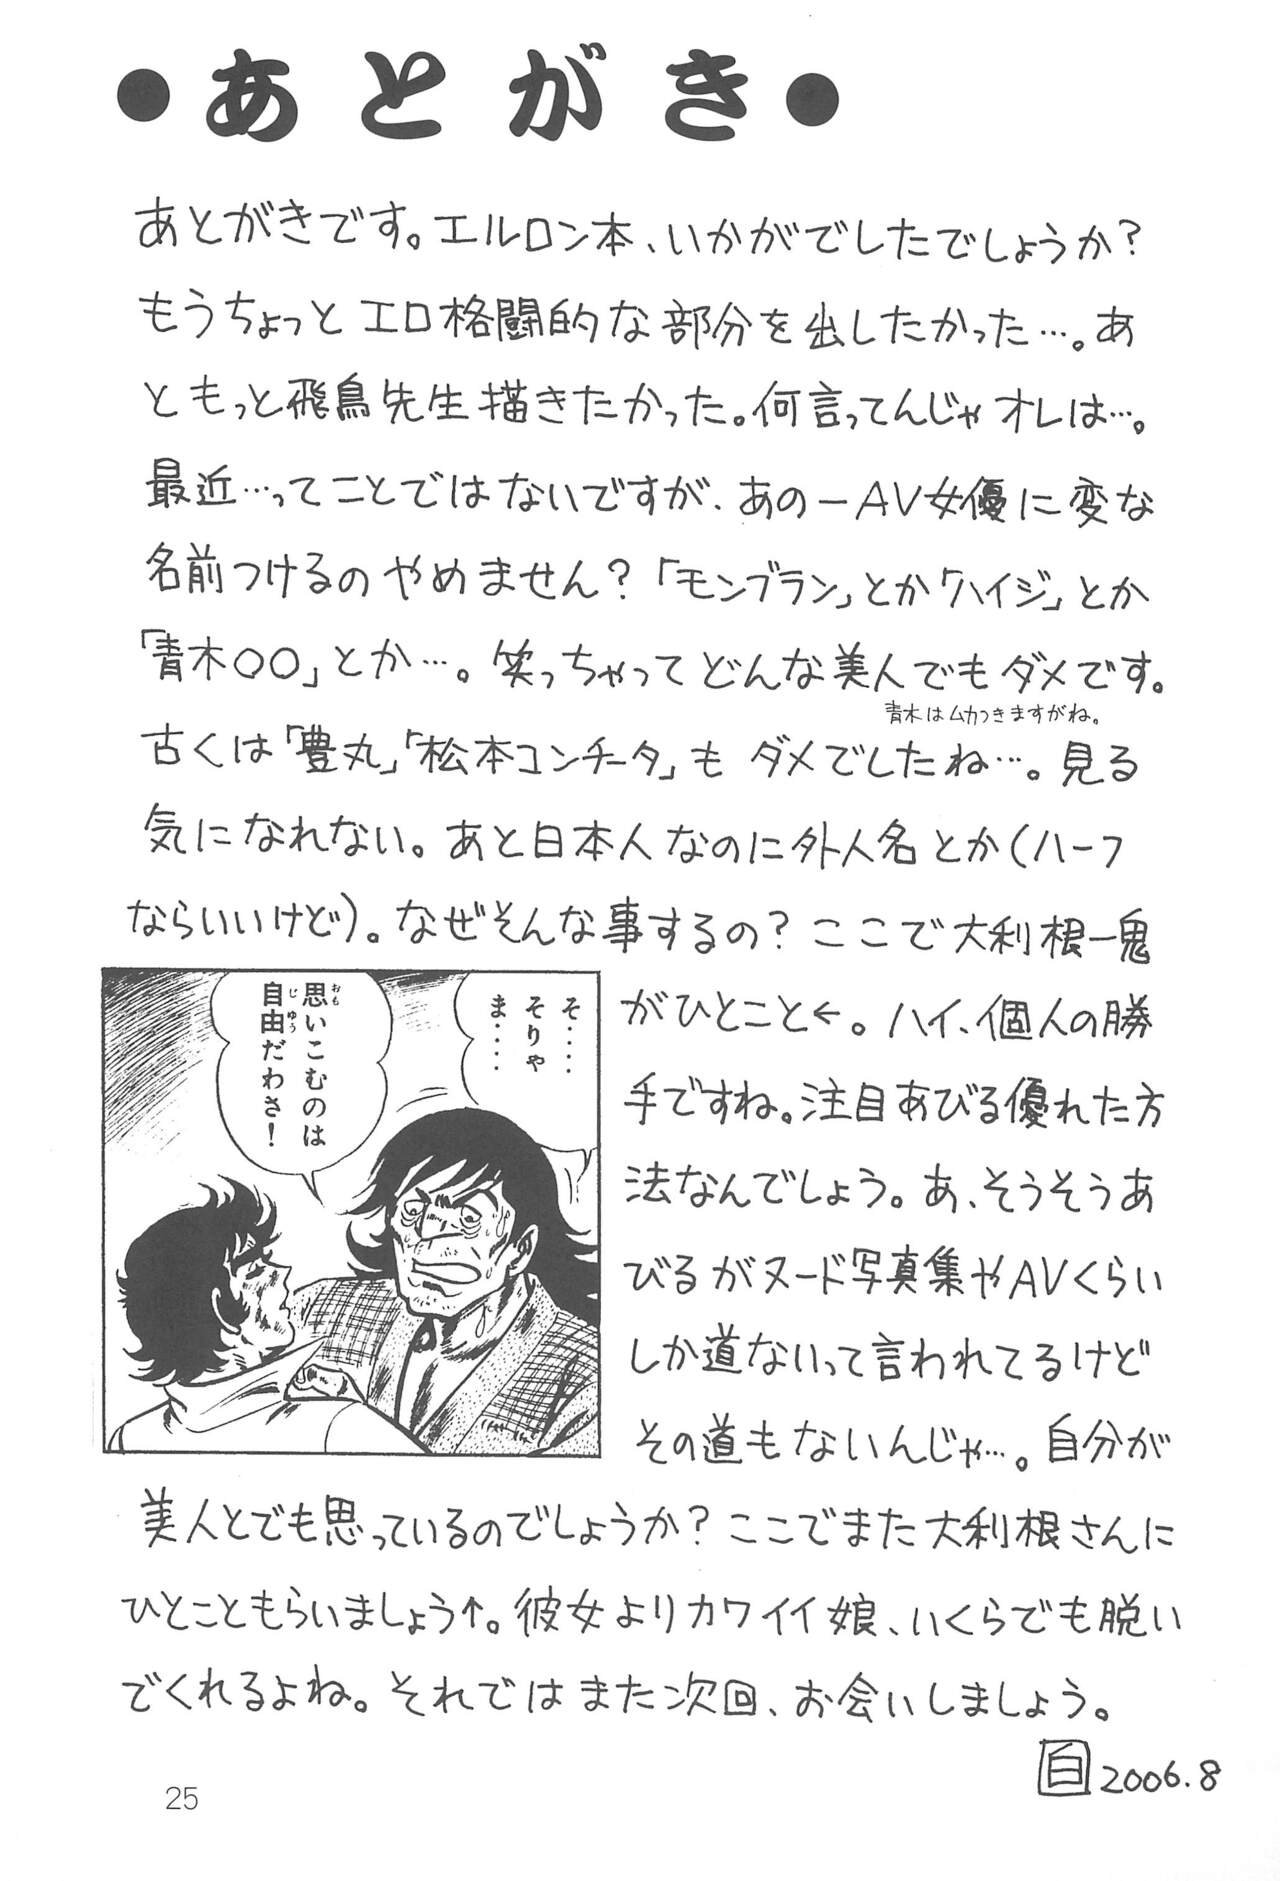 ●あとがき●
あとがきです。エルロン本、いかがでしたでしょうか？
もうちょっとエロ格闘的な部分を出したかった…。あ
ともっと飛鳥先生描きたかった。何言ってんじゃオレは…。
最近…ってことではないですが、あのーAV女優に変な
名前つけるのやめません？「モンブラン」とか「ハイジ」とか
「青木〇〇」とか…。笑っちゃってどんな美人でもダメです。
青木はムカつきますがね。
古くは「豊丸」「松本コンチータ」もダメでしたね…。見る
気になれない。あと日本人なのに外人名とか（ハーフ
ならいいけど）。なぜそんな事するの？ここで大利根一鬼
がひとこと←。ハイ、個人の勝
手ですね。注目あびる優れた方
法なんでしょう。あ、そうそうあ
びるがヌード写真集やAVくらい
しか道ないって言われてるけど
その道もないんじゃ…。自分が
そ‥‥
そりゃ
ま‥‥
思いこむのは
自由だわさ！
おも
じゆう
美人とでも思っているのでしょうか？ここでまた大利根さんに
ひとこともらいましょう↑。彼女よりカワイイ娘、いくらでも脱い
でくれるよね。それではまた次回、お会いしましょう。
白 2006.8
25